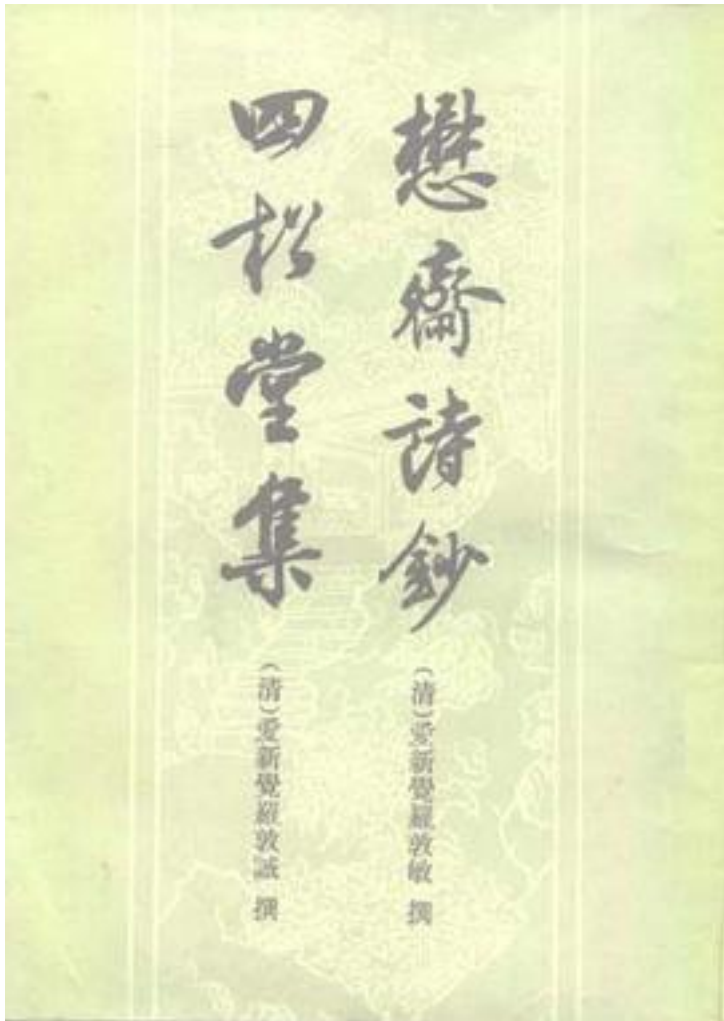 懋齋詩鈔
（清）愛新覺羅敦敏 撰
四松堂集
（清）愛新覺羅敦誠 撰